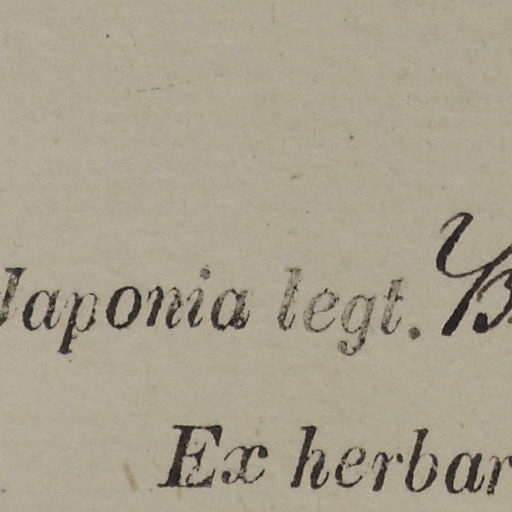 Japonia legt. B
Ex herbar